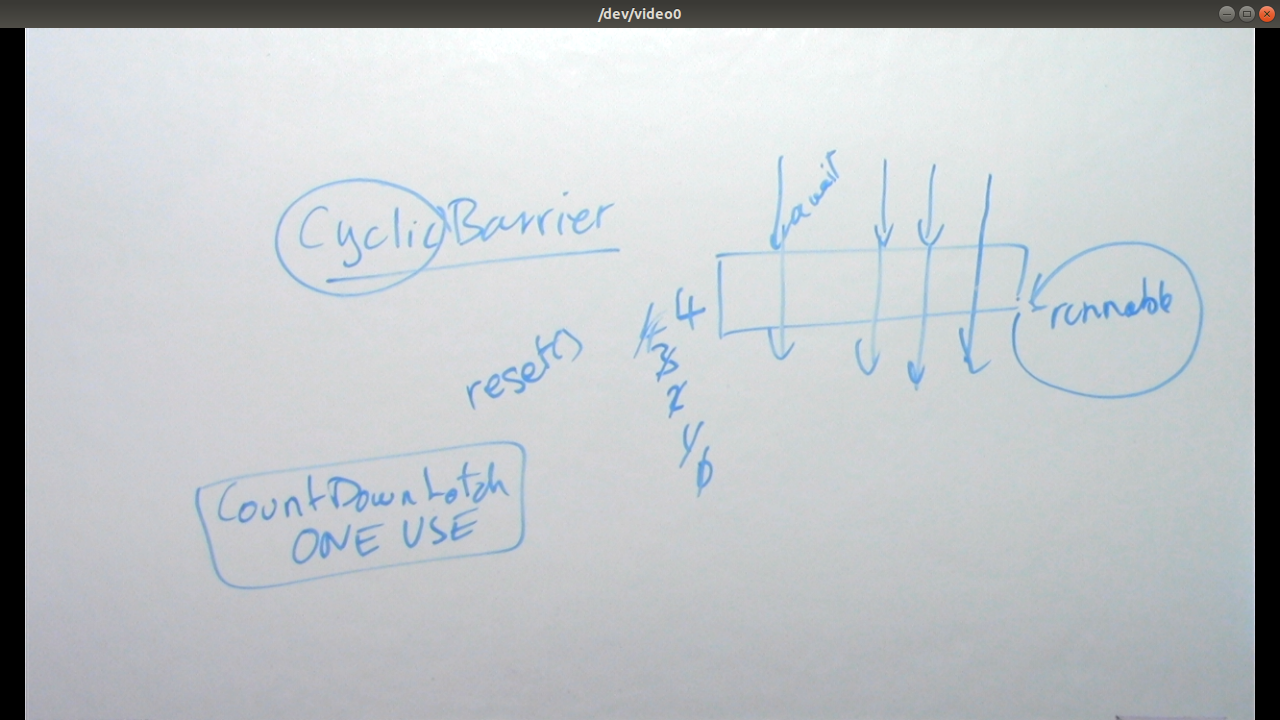 /dev/video0
CyclicBarrier
await
runnable
4 4
3
2
1
0
reset()
CountDownLatch
ONE USE